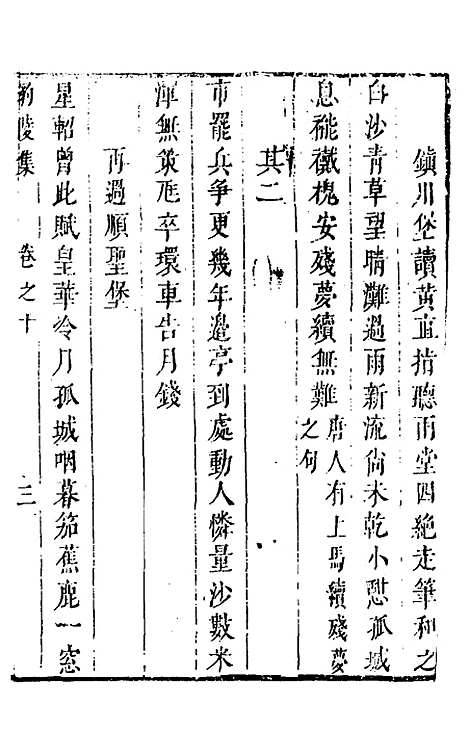 鎮川堡讀黃直指聽雨堂四絶走筆和之
白沙青草望晴灘過雨新流尚未乾小憩孤城
息〓襶槐安殘夢續無難唐人有上馬續殘夢之句
其二
市罷兵爭更幾年邊亭到處動人憐量沙數米
渾無策〓卒環車告月錢
再過順聖堡
星軺曾此賦皇華令月孤城咽暮笳蕉鹿一窓
〓陵集 卷之十 三